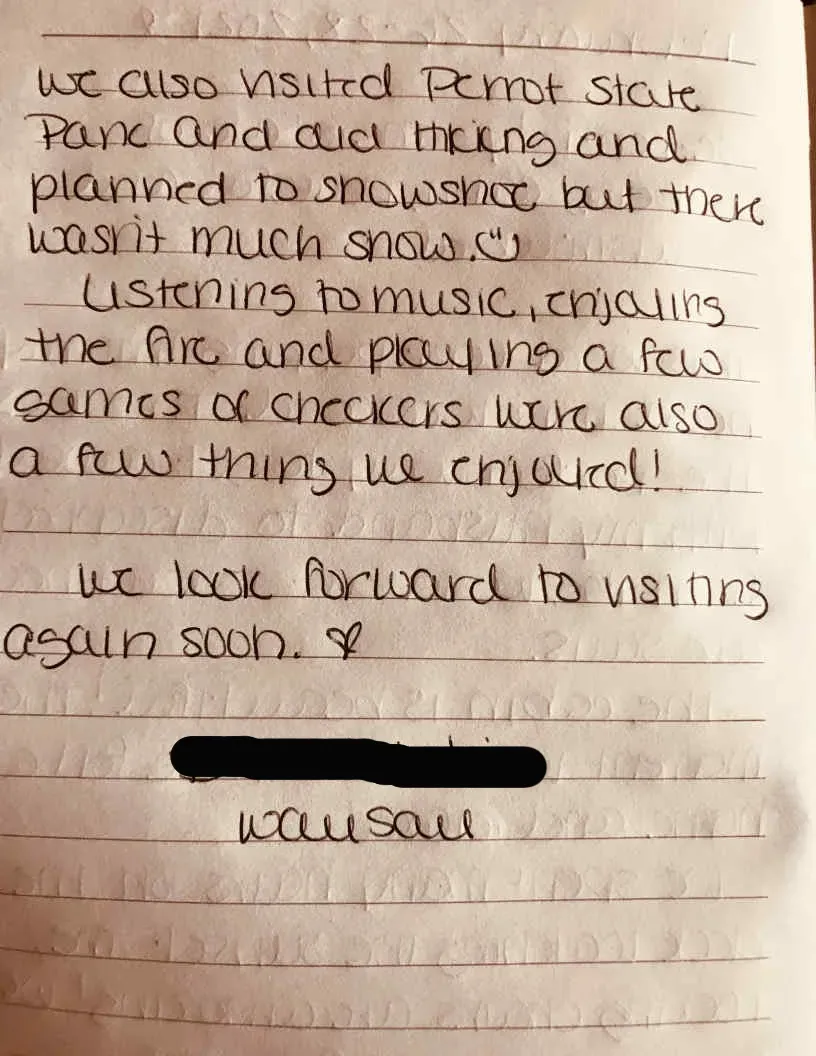 We also visited Perrot State
Park and did hiking and
planned to snowshoe but there
wasn't much snow.
Listening to music, enjoying
the fire and playing a few
games of checkers were also
a few thing we enjoyed!
We look forward to visiting
again soon.
Wausau